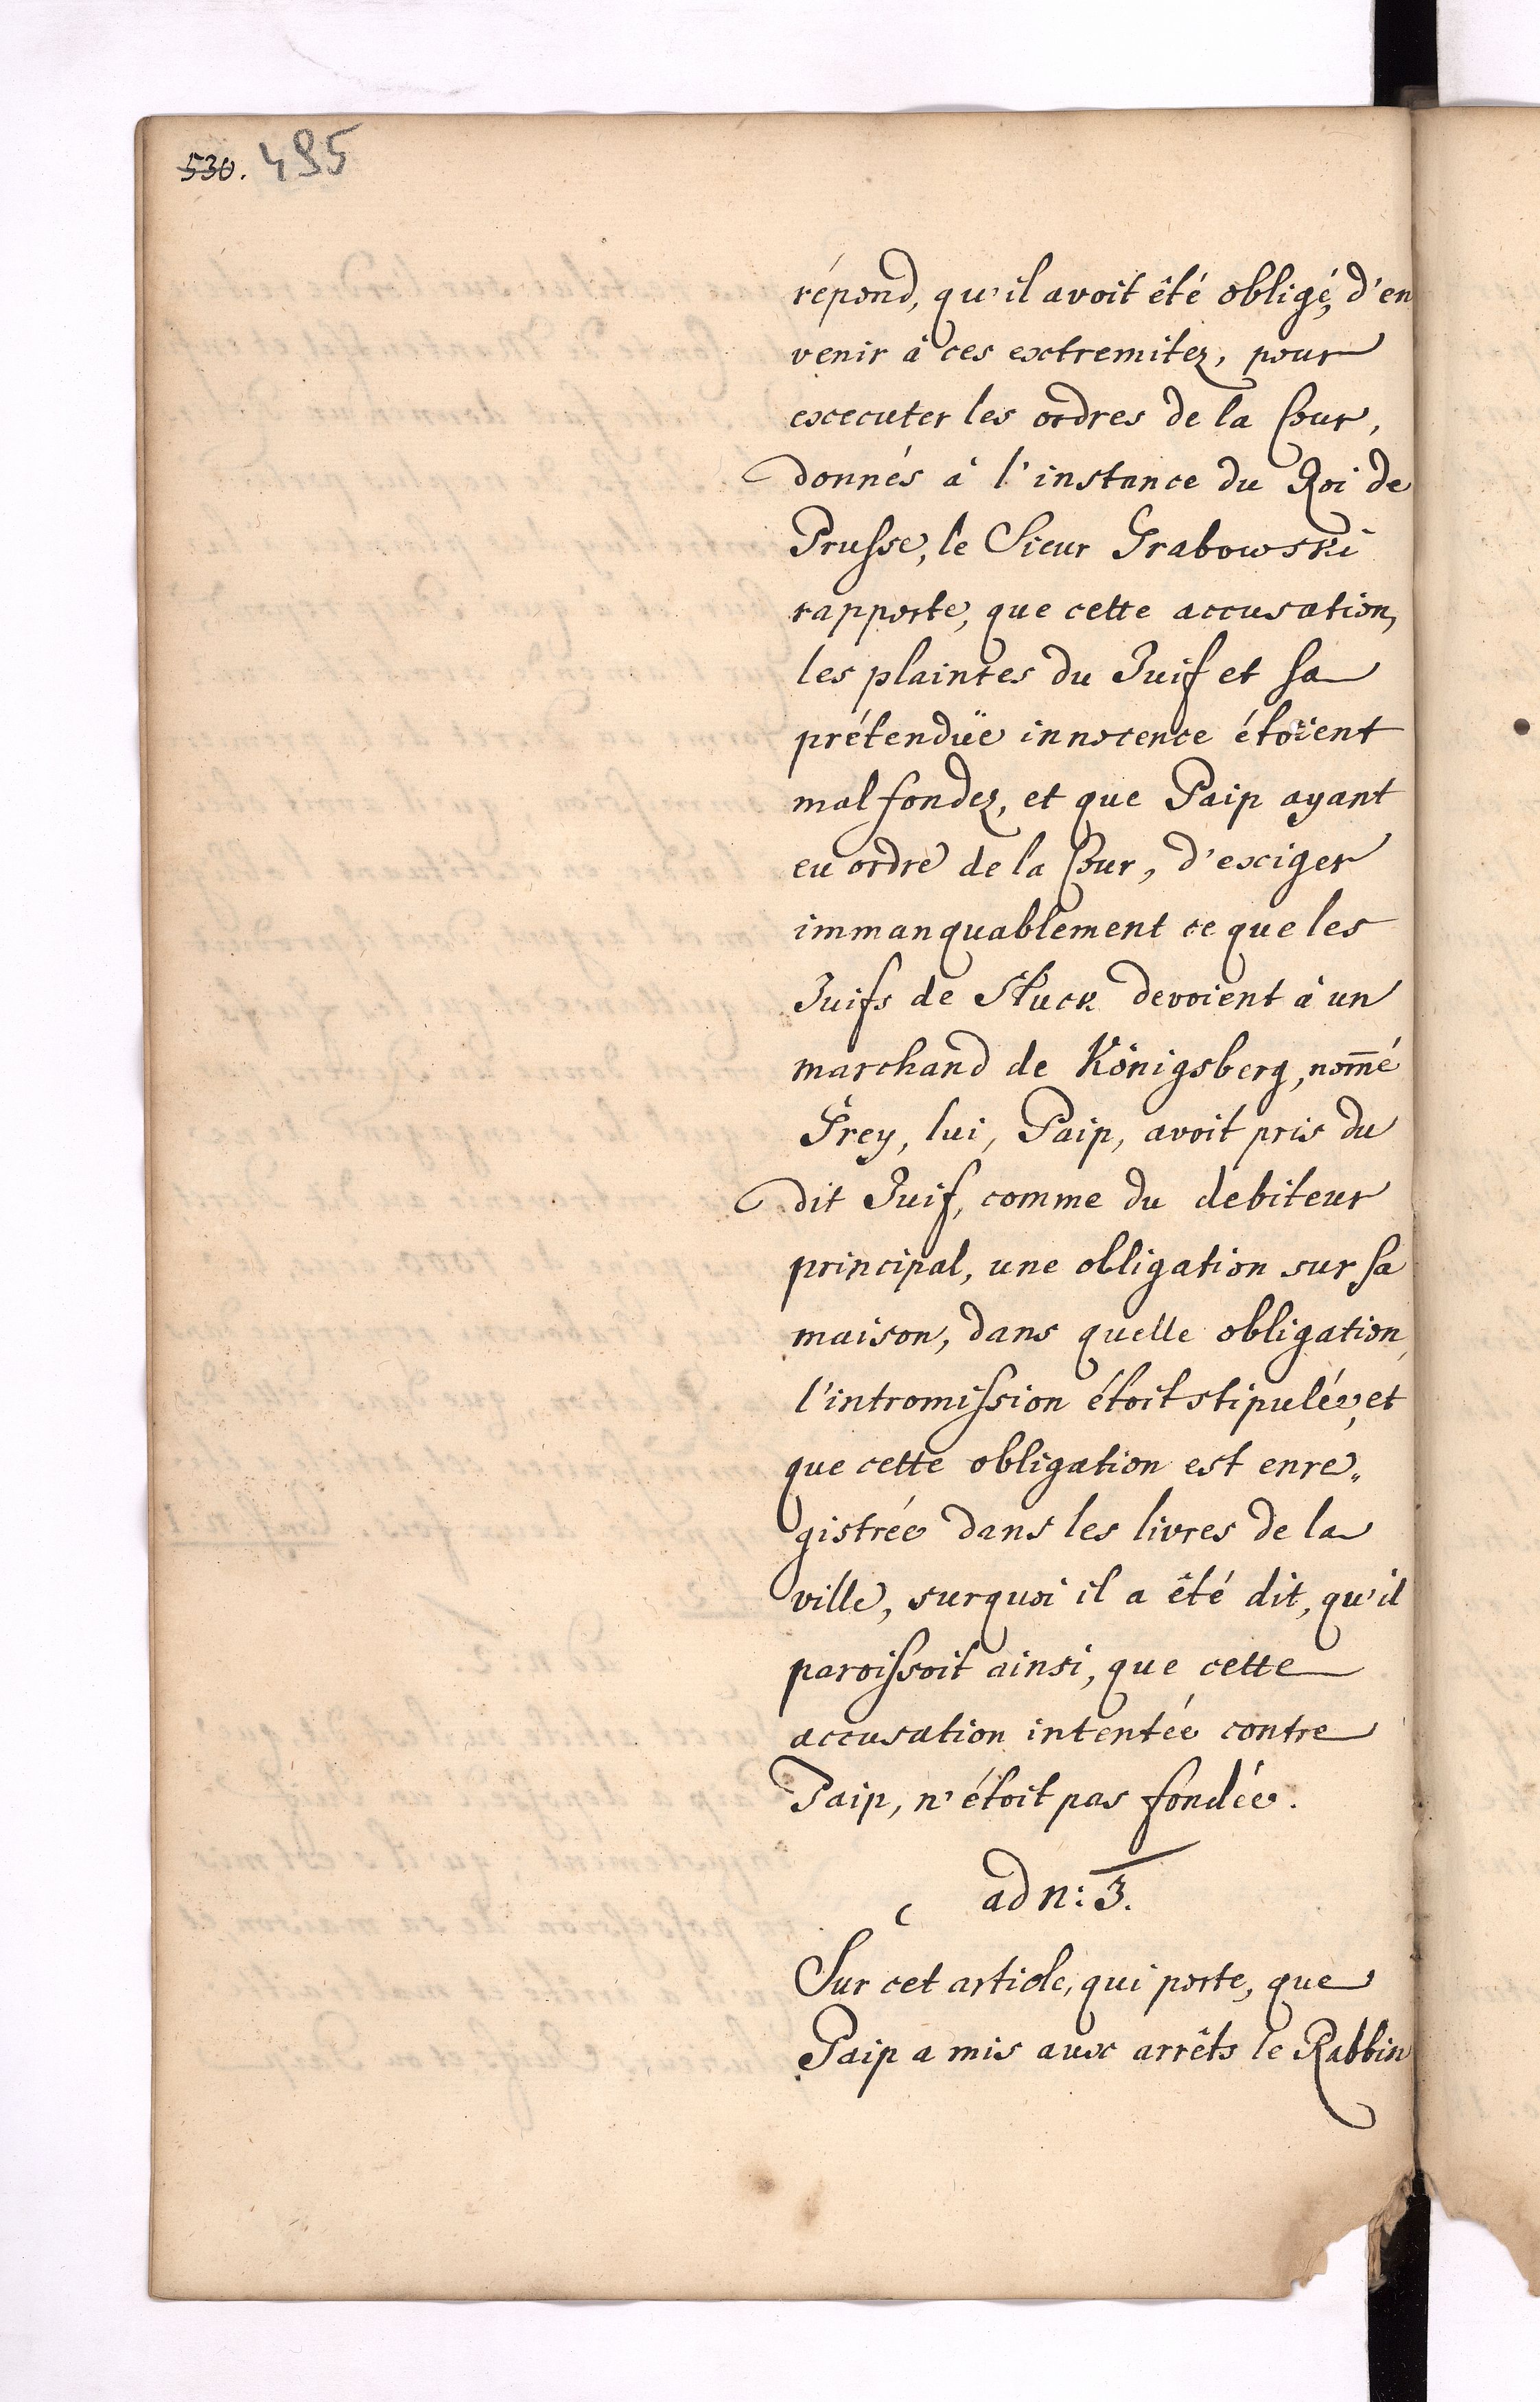 530. 495
répond, qu'il avoit êté obligé, d'en
venir à ces extremitez, pour
executer les ordres de la Cour,
donnés à l'instance du Roi de
Prusse, le Sieur Grabowski
rapporte, que cette accusation,
les plaintes du Juif et sa
prétendüe innocence étoient
mal fondez, et que Paip ayant
eu ordre de la Cour, d'exiger
immanquablement ce que les
Juifs de Sluck devoient à un
marchand de Königsberg, nom̄é
Grey, lui, Paip, avoit pris du
dit Juif, comme du debiteur
principal, une obligation sur sa
maison, dans quelle obligation,
l'intromission étoit stipulée, et
que cette obligation est enre„
gistrée dans les livres de la
ville, surquoi il a êté dit, qu'il
paroissoit ainsi, que cette
accusation intentée contre
Paip, n'étoit pas fondée.
ad n: 3.
Sur cet article, qui porte, que
Paip a mis aux arrêts le Rabbin